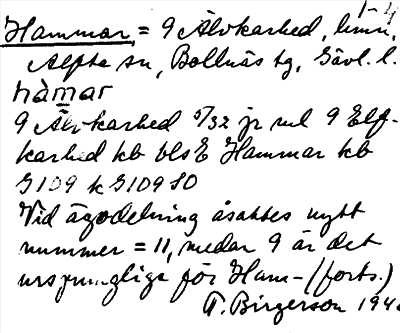 1-4
Hammar = 9 Älvkarhed, hmn,
Alfta sn, Bollnäs tg, Gävl. l.
hàmar
9 Älvkarhed 5/32 jr ml 9 Elf-
karhed kb bls E Hammar kb
G109 k G109 SO
Vid ägodelning åsattes nytt
nummer = 11, medan 9 är det
ursprungliga för Ham- (forts.)
T. Birgerson 194